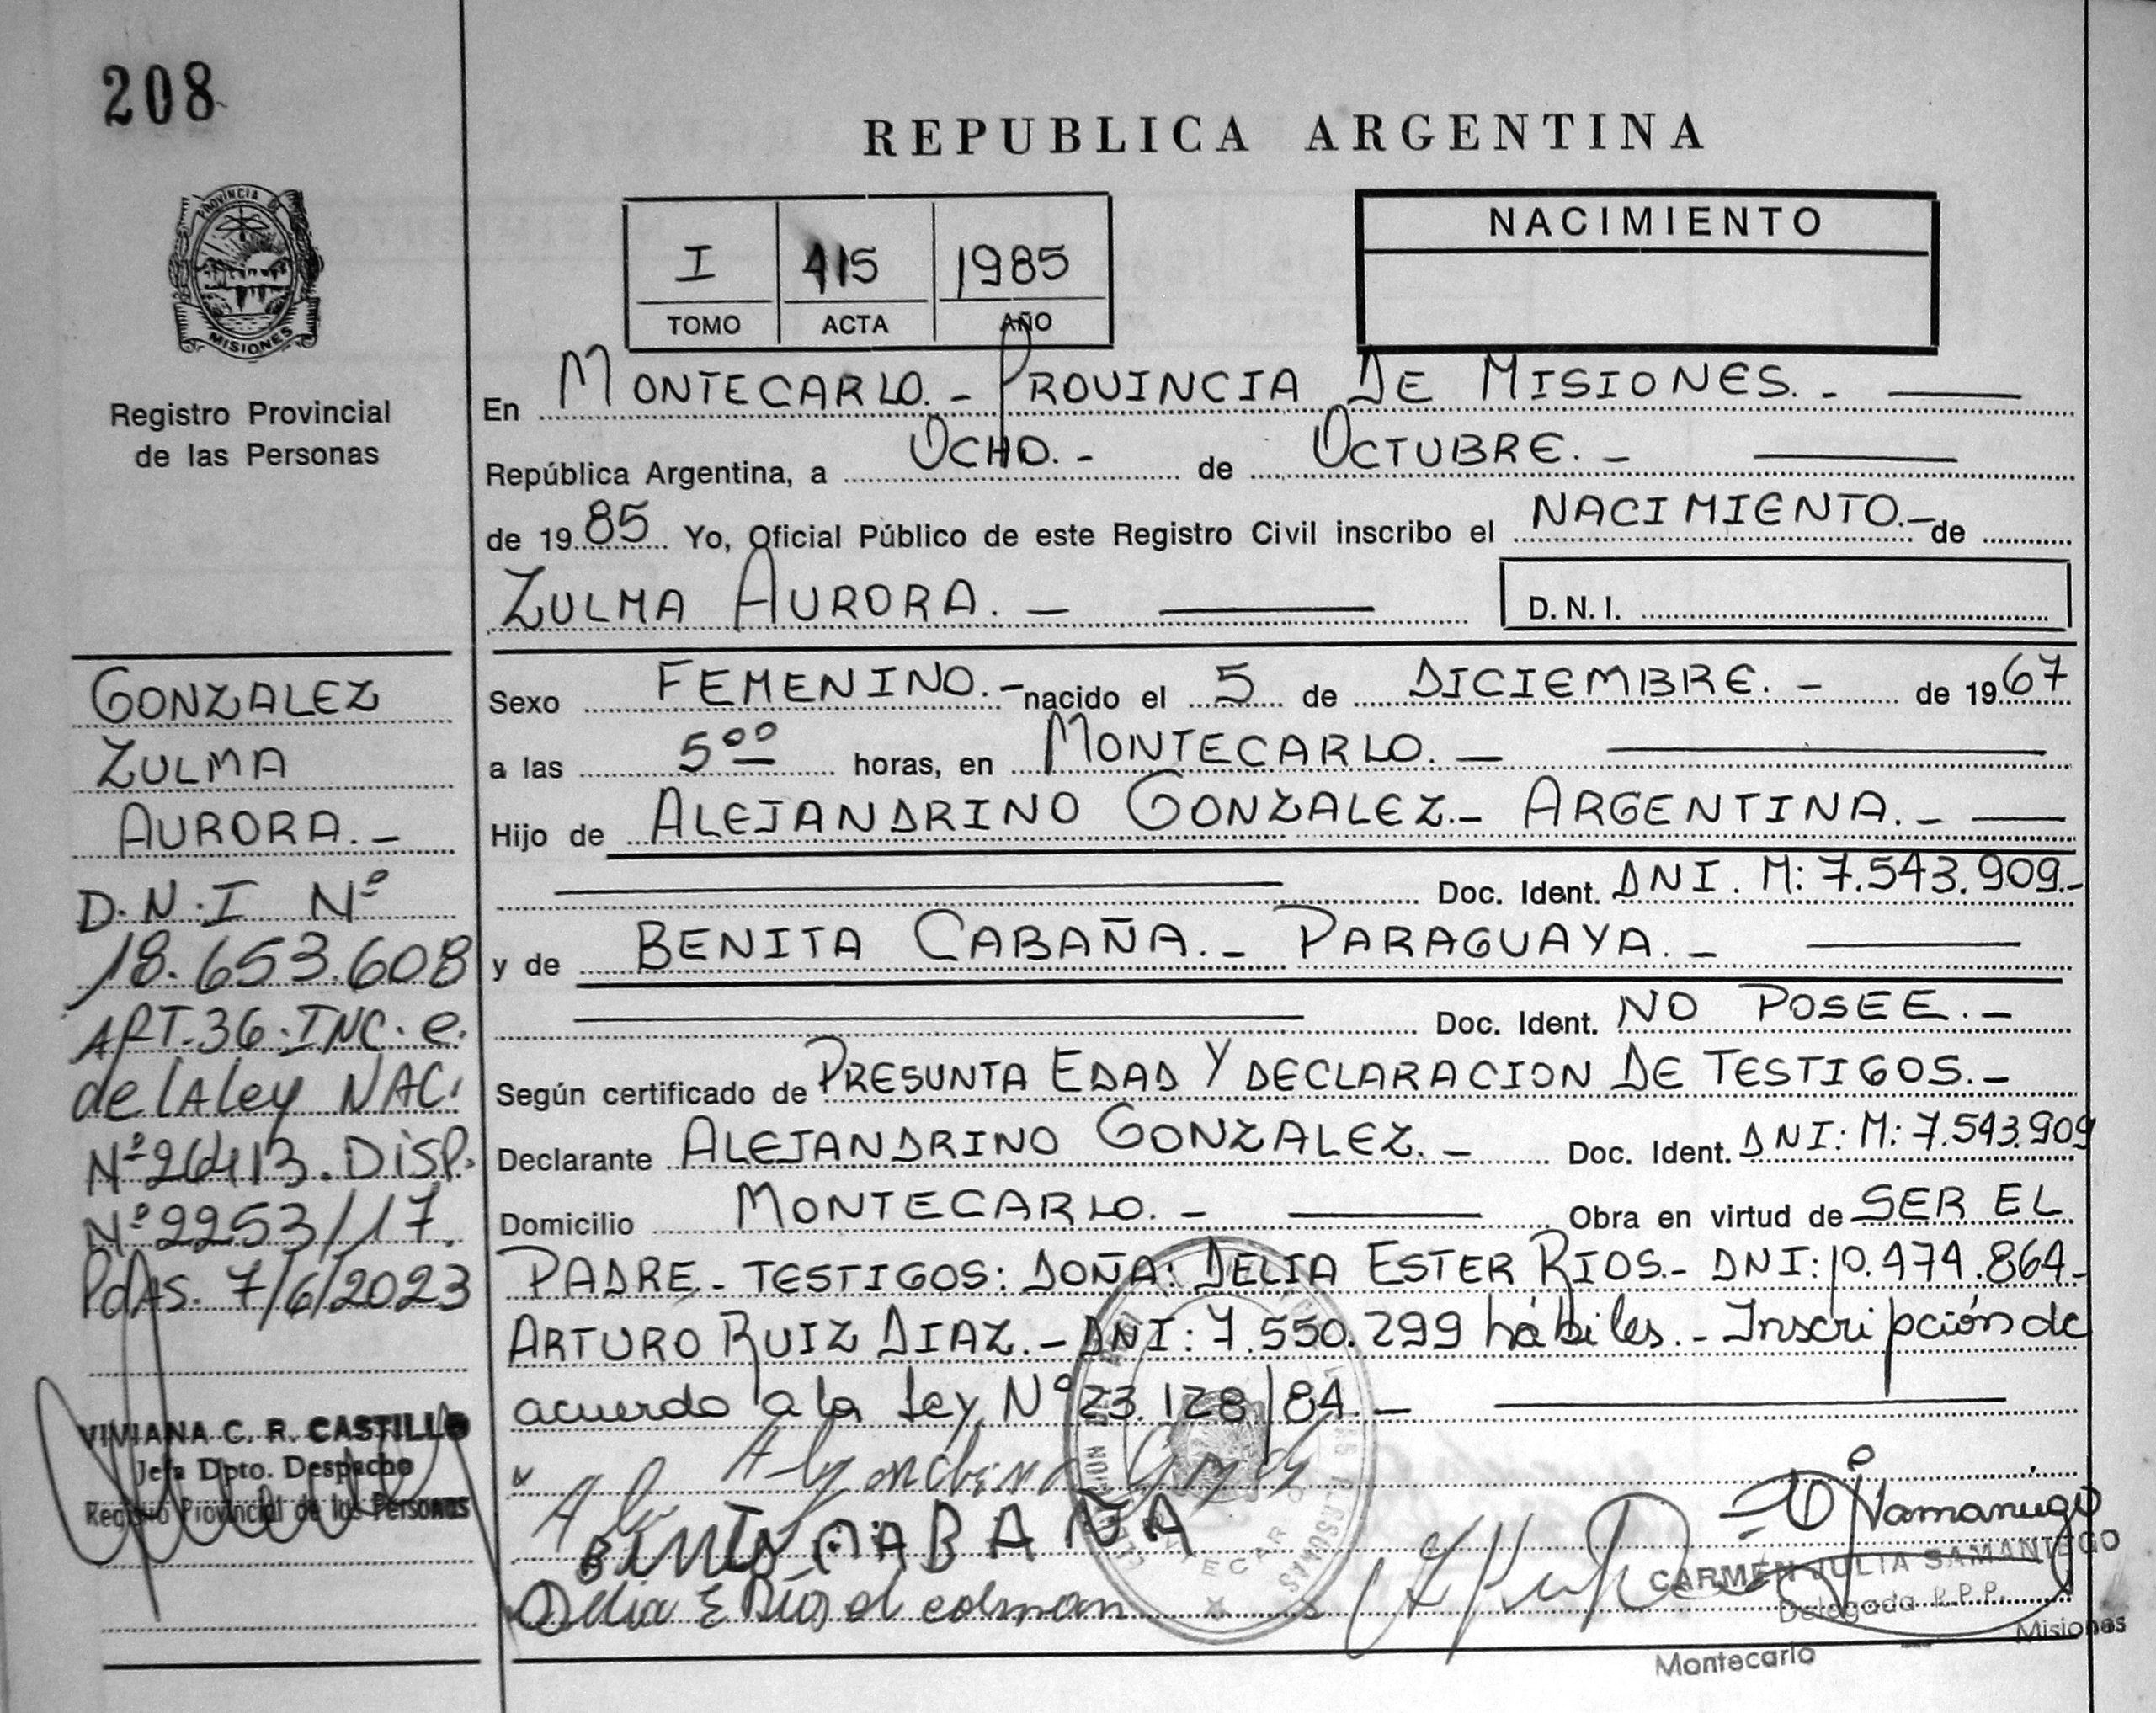 208
REPUBLICA ARGENTINA
PROVINCIA DE
MISIONES
Registro Provincial
de las Personas
I 415 1985
TOMO ACTA AÑO
NACIMIENTO
En MONTECARLO.- PROVINCIA DE MISIONES.-
República Argentina, a OCHO.- de OCTUBRE.-
de 1985 Yo, Oficial Público de este Registro Civil inscribo el NACIMIENTO.- de
ZULMA AURORA.- D.N.I.
GONZALEZ
ZULMA
AURORA.-
D.N.I Nº
18.653.608
ART.36.INC.e.
de lA ley NAC.
Nº26413.DISP.
Nº2253/17.
PdAS. 7/6/2023
VIVIANA C. R. CASTILLO
Jefa Dpto. Despacho
Registro Provincial de las Personas
Sexo FEMENINO.- nacido el 5 de DICIEMBRE.- de 1967
a las 5ºº horas, en MONTECARLO.-
Hijo de ALEJANDRINO GONZALEZ.- ARGENTINA.-
Doc. Ident. DNI. M: 7.543.909.-
y de BENITA CABAÑA.- PARAGUAYA.-
Doc. Ident. NO POSEE.-
Según certificado de PRESUNTA EDAD Y DECLARACION DE TESTIGOS.-
Declarante ALEJANDRINO GONZALEZ.- Doc. Ident. DNI: M: 7.543.909
Domicilio MONTECARLO.- Obra en virtud de SER EL
PADRE.- TESTIGOS: DOÑA: DELIA ESTER RIOS.- DNI: 10.474.864-
ARTURO RUIZ DIAZ.- DNI: 7.550.299 hábiles.- Inscripción de
acuerdo a la Ley Nº23.128/84.-
CABAÑA
Delia E Ríos d colman
CARMEN JULIA SAMANIEGO
Delegada R.P.P.
Montecarlo Misiones